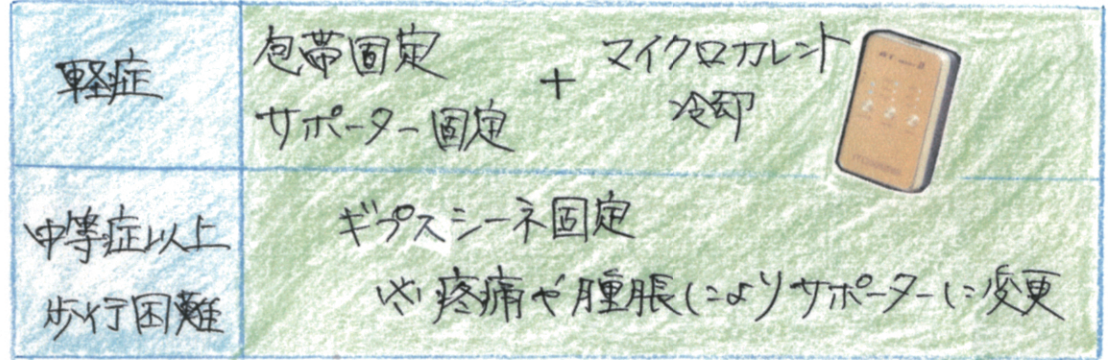 軽症
包帯固定
サポーター固定
+
マイクロカレント
冷却
中等症以上
歩行困難
ギプスシーネ固定
疼痛や腫脹によりサポーターに変更